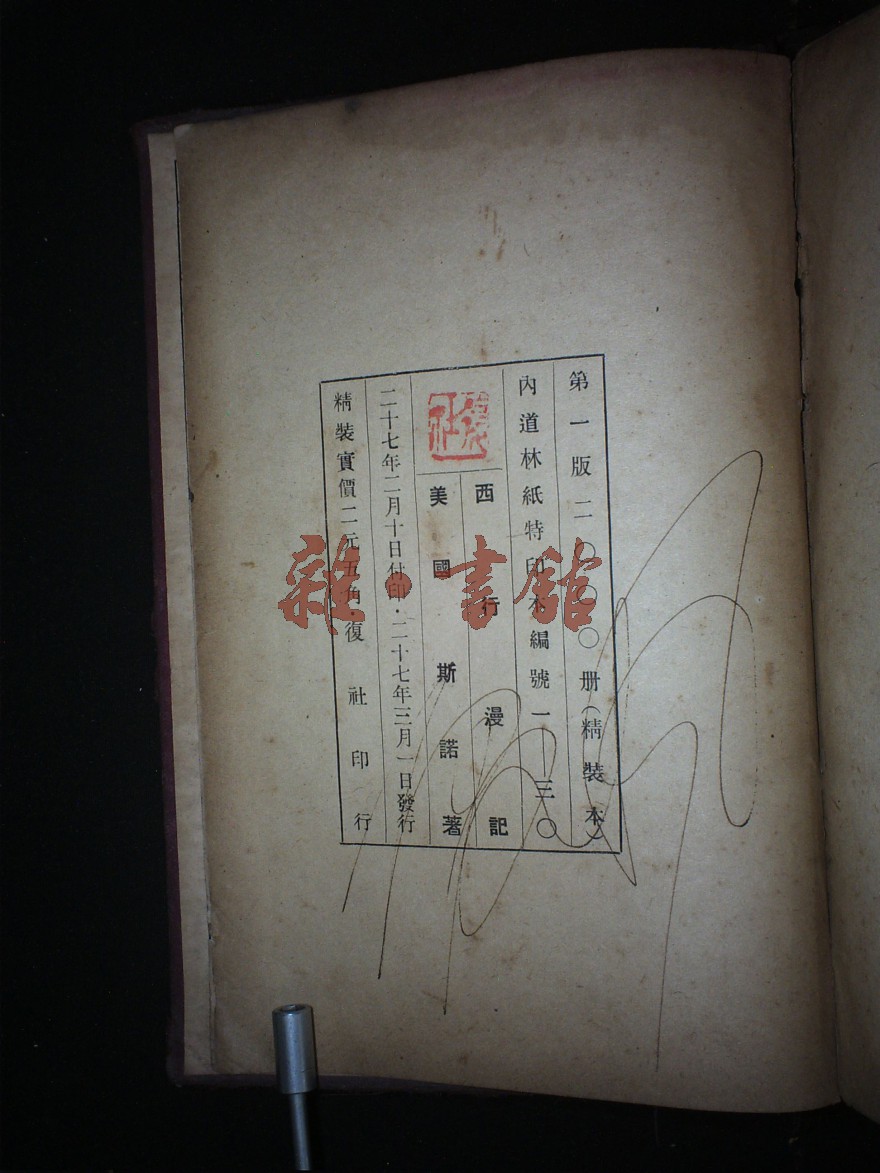 第一版二〇〇〇册（精裝本）
內道林紙特印本編號一——三〇
西行漫記
美國斯諾著
復社
二十七年二月十日付印·二十七年三月一日發行
精裝實價二元五角·復社印行
雜·書館